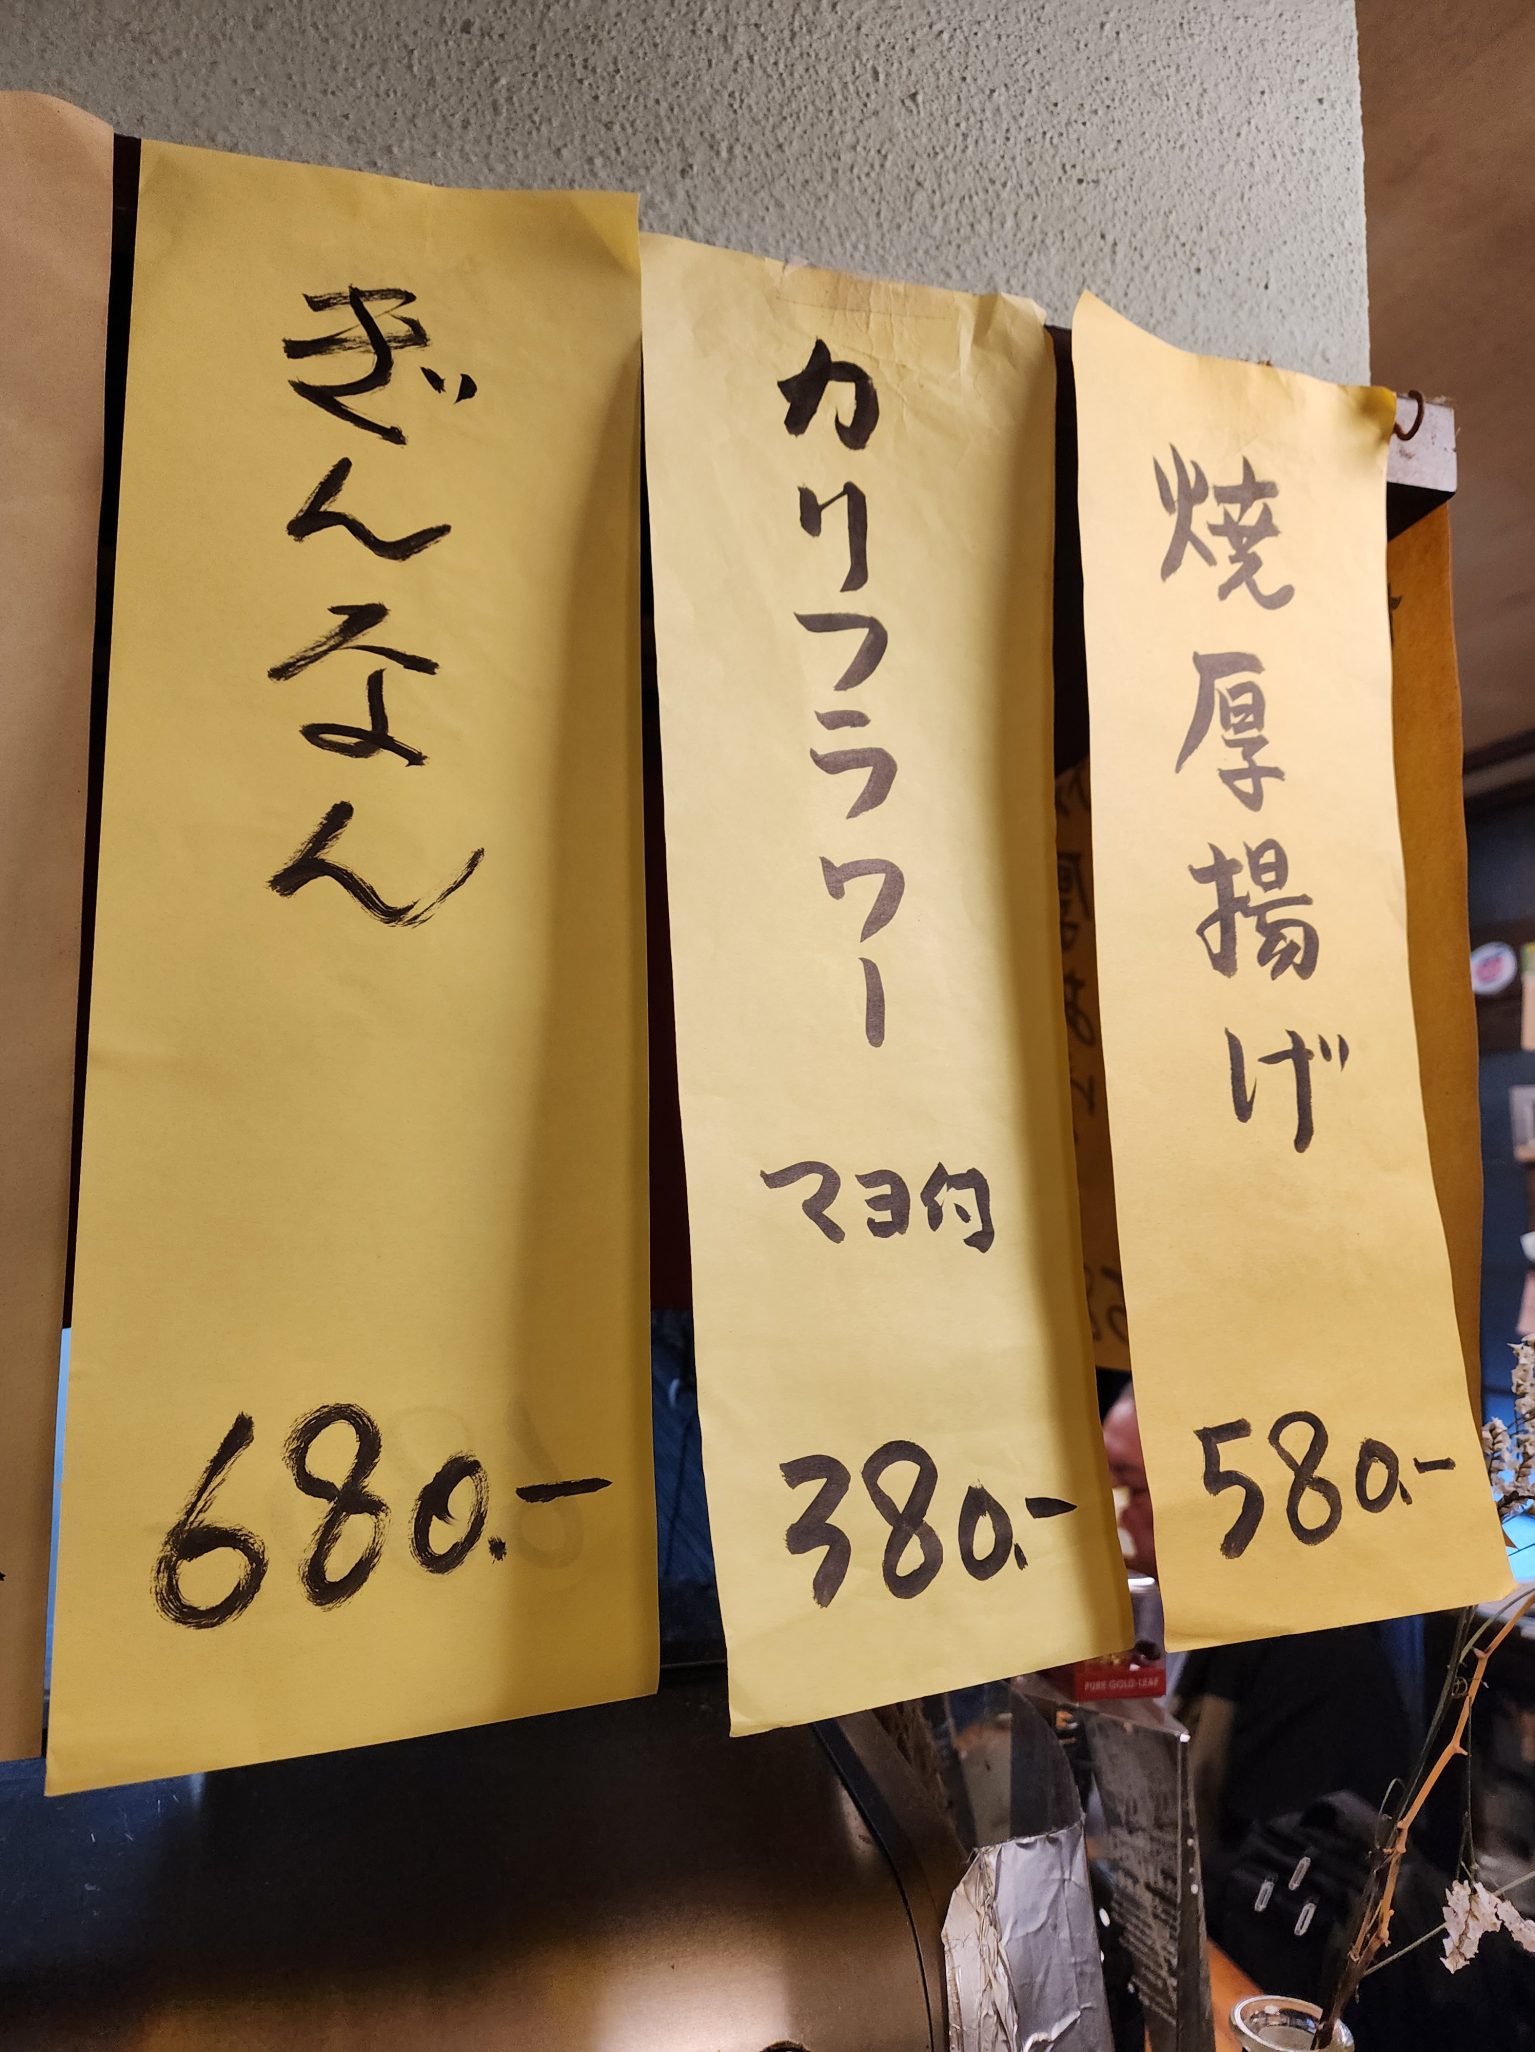 ぎんなん
680.-
カリフラワー
マヨ付
380.-
焼厚揚げ
580.-
PURE GOLD-LEAF